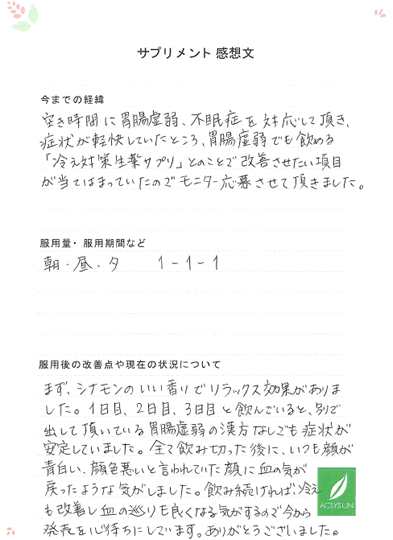 サプリメント 感想文
今までの経緯
空き時間に胃腸虚弱、不眠症を対応して頂き、
症状が軽快していたところ、胃腸虚弱でも飲める
「冷え対策生薬サプリ」とのことで改善させたい項目
が当てはまっていたのでモニター応募させて頂きました。
服用量・服用期間など
朝・昼・夕 1-1-1
服用後の改善点や現在の状況について
まず、シナモンのいい香りでリラックス効果がありま
した。1日目、2日目、3日目と飲んでいると、別で
出して頂いている胃腸虚弱の漢方なしでも症状が
安定していました。全て飲み切った後に、いつも顔が
青白い、顔色悪いと言われていた顔に血の気が
戻ったような気がしました。飲み続ければ冷え
も改善し血の巡りも良くなる気がするので今から
発売を心待ちにしています。ありがとうございました。
ACSYSUN